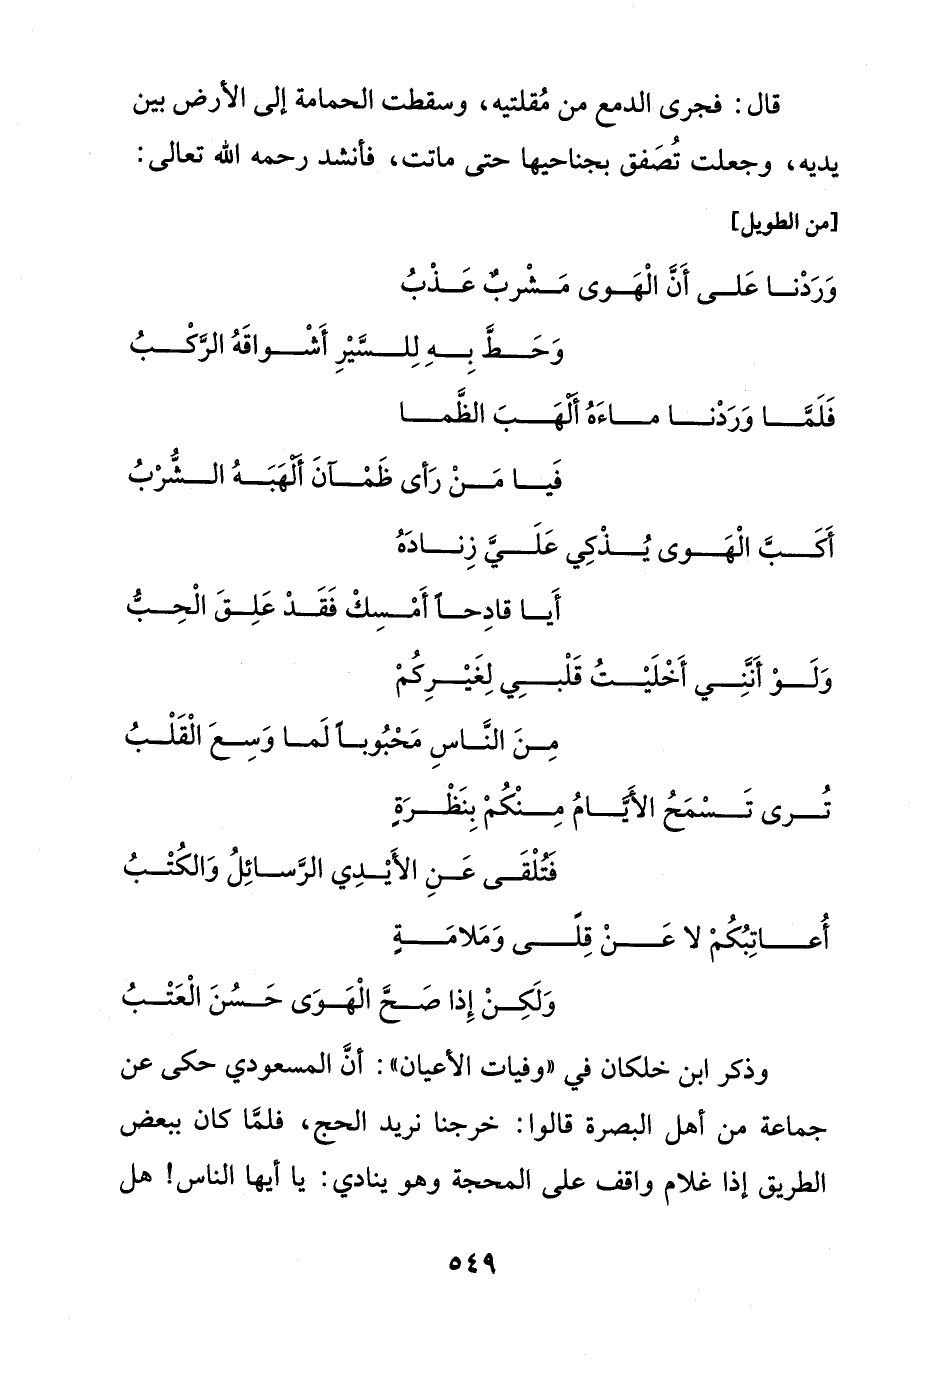 قال: فجرى الدمع من مُقلتيه، وسقطت الحمامة إلى الأرض بين
يديه، وجعلت تُصَفق بجناحيها حتى ماتت، فأنشد رحمه الله تعالى:
[من الطويل]
وَرَدْنا عَلى أَنَّ الْهَوى مَشْربٌ عَذْبُ
وَحَطَّ بِهِ لِلسَّيْرِ أَشْواقَهُ الرَّكْبُ
فَلَمَّا وَرَدْنا ماءَهُ أَلْهَبَ الظَّما
فَيا مَنْ رَأى ظَمْآنَ أَلْهَبَهُ الشُّرْبُ
أَكَبَّ الْهَوى يُذْكِي عَلَيَّ زِنادَهُ
أَيا قادِحاً أَمْسِكْ فَقَدْ عَلِقَ الْحِبُّ
وَلَوْ أَنَّنِي أَخْلَيْتُ قَلْبِي لِغَيْرِكُمْ
مِنَ النَّاسِ مَحْبُوباً لَما وَسِعَ الْقَلْبُ
تُرى تَسْمَحُ الأَيَّامُ مِنْكُمْ بِنَظْرَةٍ
فَتُلْقَى عَنِ الأَيْدِي الرَّسائِلُ وَالكُتْبُ
أُعاتِبُكُمْ لا عَنْ قِلًى وَمَلامَةٍ
وَلَكِنْ إِذا صَحَّ الْهَوَى حَسُنَ الْعَتْبُ
وذكر ابن خلكان في «وفيات الأعيان»: أنَّ المسعودي حكى عن
جماعة من أهل البصرة قالوا: خرجنا نريد الحج، فلمَّا كان ببعض
الطريق إذا غلام واقف على المحجة وهو ينادي: يا أيها الناس! هل
٥٤٩